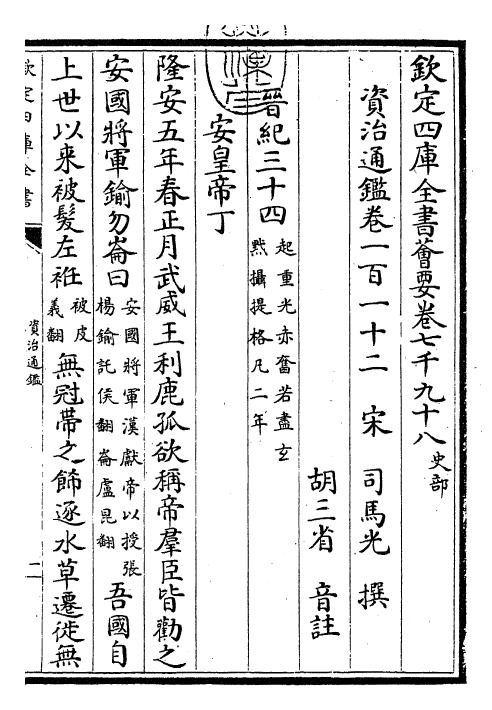 欽定四庫全書薈要卷七千九十八 史部
資治通鑑卷一百一十二 宋 司馬光 撰
胡三省 音註
晉紀三十四 起重光赤奮若盡玄黓攝提格凡二年
安皇帝丁
隆安五年春正月武威王利鹿孤欲稱帝羣臣皆勸之
安國將軍鍮勿崙曰 安國將軍漢獻帝以授張楊鍮託侯翻崙盧昆翻 吾國自
上世以來被髮左袵 被皮義翻 無冠帶之飾逐水草遷徙無
欽定四庫全書
資治通鑑
二